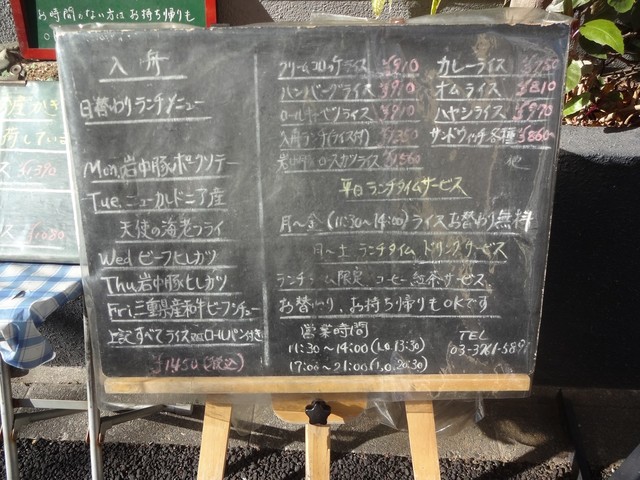 お時間のない方は お持ち帰りも
日替わりランチメニュー
Mon, 岩中豚ポークソテー
Tue, ニューカレドニア産
天使の海老フライ
Wed ビーフヒレカツ
Thu, 岩中豚ヒレカツ
Fri, 三重県産和牛ビーフシチュー
上記すべてライス又はロールパン付き
¥1450 (税込)
クリームコロッケライス ¥910
ハンバーグライス ¥910
ロールキャベツライス ¥910
ロースカツライス ¥1560
カレーライス ¥750
オムライス ¥810
ハヤシライス ¥970
サンドウィッチ各種 ¥860
他
平日ランチタイムサービス
月〜金 (11:30〜14:00) ライスお替わり無料
月〜土 ランチタイム ドリンクサービス
ランチタイム限定 コーヒー紅茶サービス
お替わり、お持ち帰りもOKです
営業時間
11:30〜14:00 (L.O.13:30)
17:00〜21:00 (L.O.20:30)
TEL
¥1390
¥1080